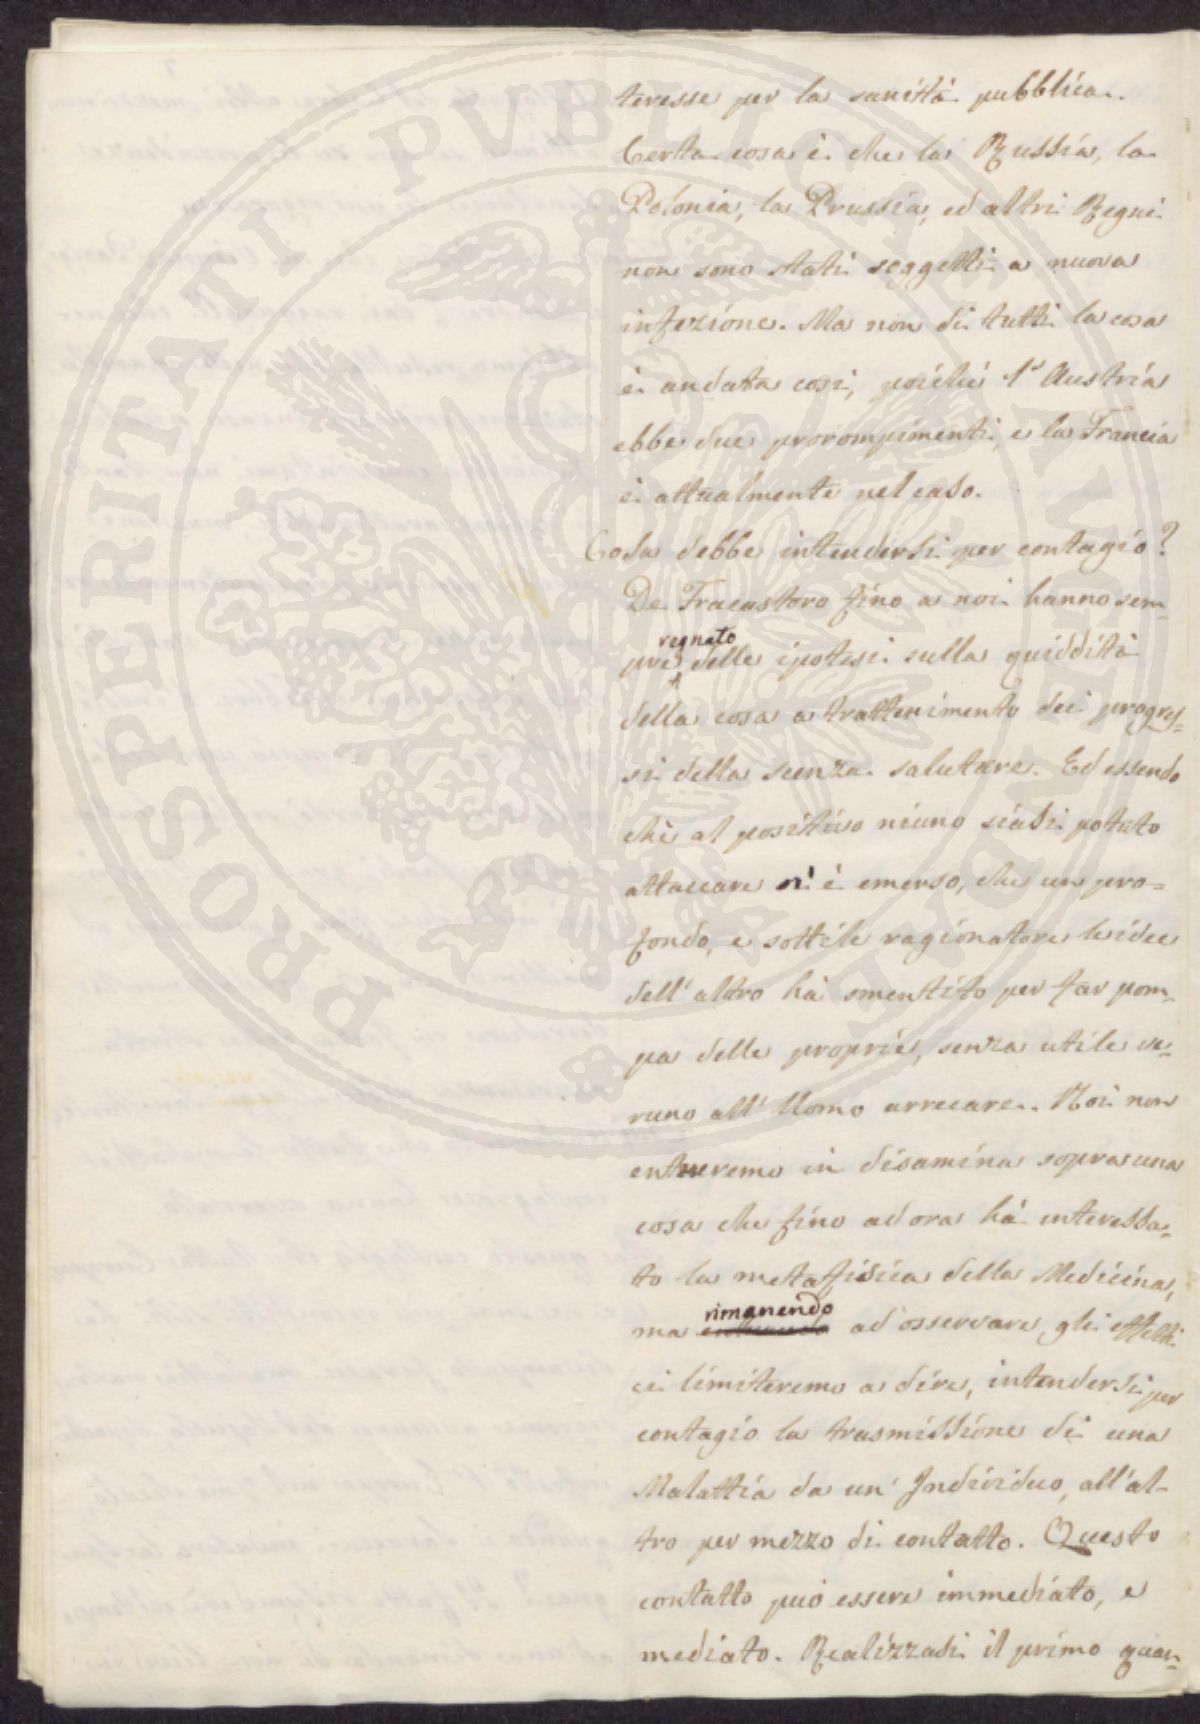 teresse per la sanittà pubblica.
Certa cosa è che la Russia, la
Polonia, la Prussia, ed altri Regni
non sono stati soggetti a nuova
infezione. Ma non di tutti la cosa
è andata così, poiché l'Austria
ebbe due prorompimenti, e la Francia
è attualmente nel caso.
Cosa debbe intendersi per contagio?
De Fracastoro fino a noi hanno sem-
pre regnato delle ipotesi sulla quiddità
della cosa a trattenimento dei progres-
si della scenza salutare. Ed essendo
ché al positivo niuno siasi potuto
attaccare n'è emerso, che un pro=
fondo, e sottile ragionatore le idee
dell'altro hà smentito per far pom-
pa delle proprie, senza utile ve-
runo all'Uomo arrecare. Noi non
entreremo in disamina sopra una
cosa che fino ad ora hà interessa-
to la metafisica della Medicina,
ma rimanendo ad osservare gli effetti
ci limiteremo a dire, intendersi per
contagio la trasmissione di una
Malattia da un' Individuo, all'al-
tro per mezzo di contatto. Questo
contatto può essere immediato, e
mediato. Realizzasi il primo quan-
PROSPERITATI PVBLICAE AVGENDAE